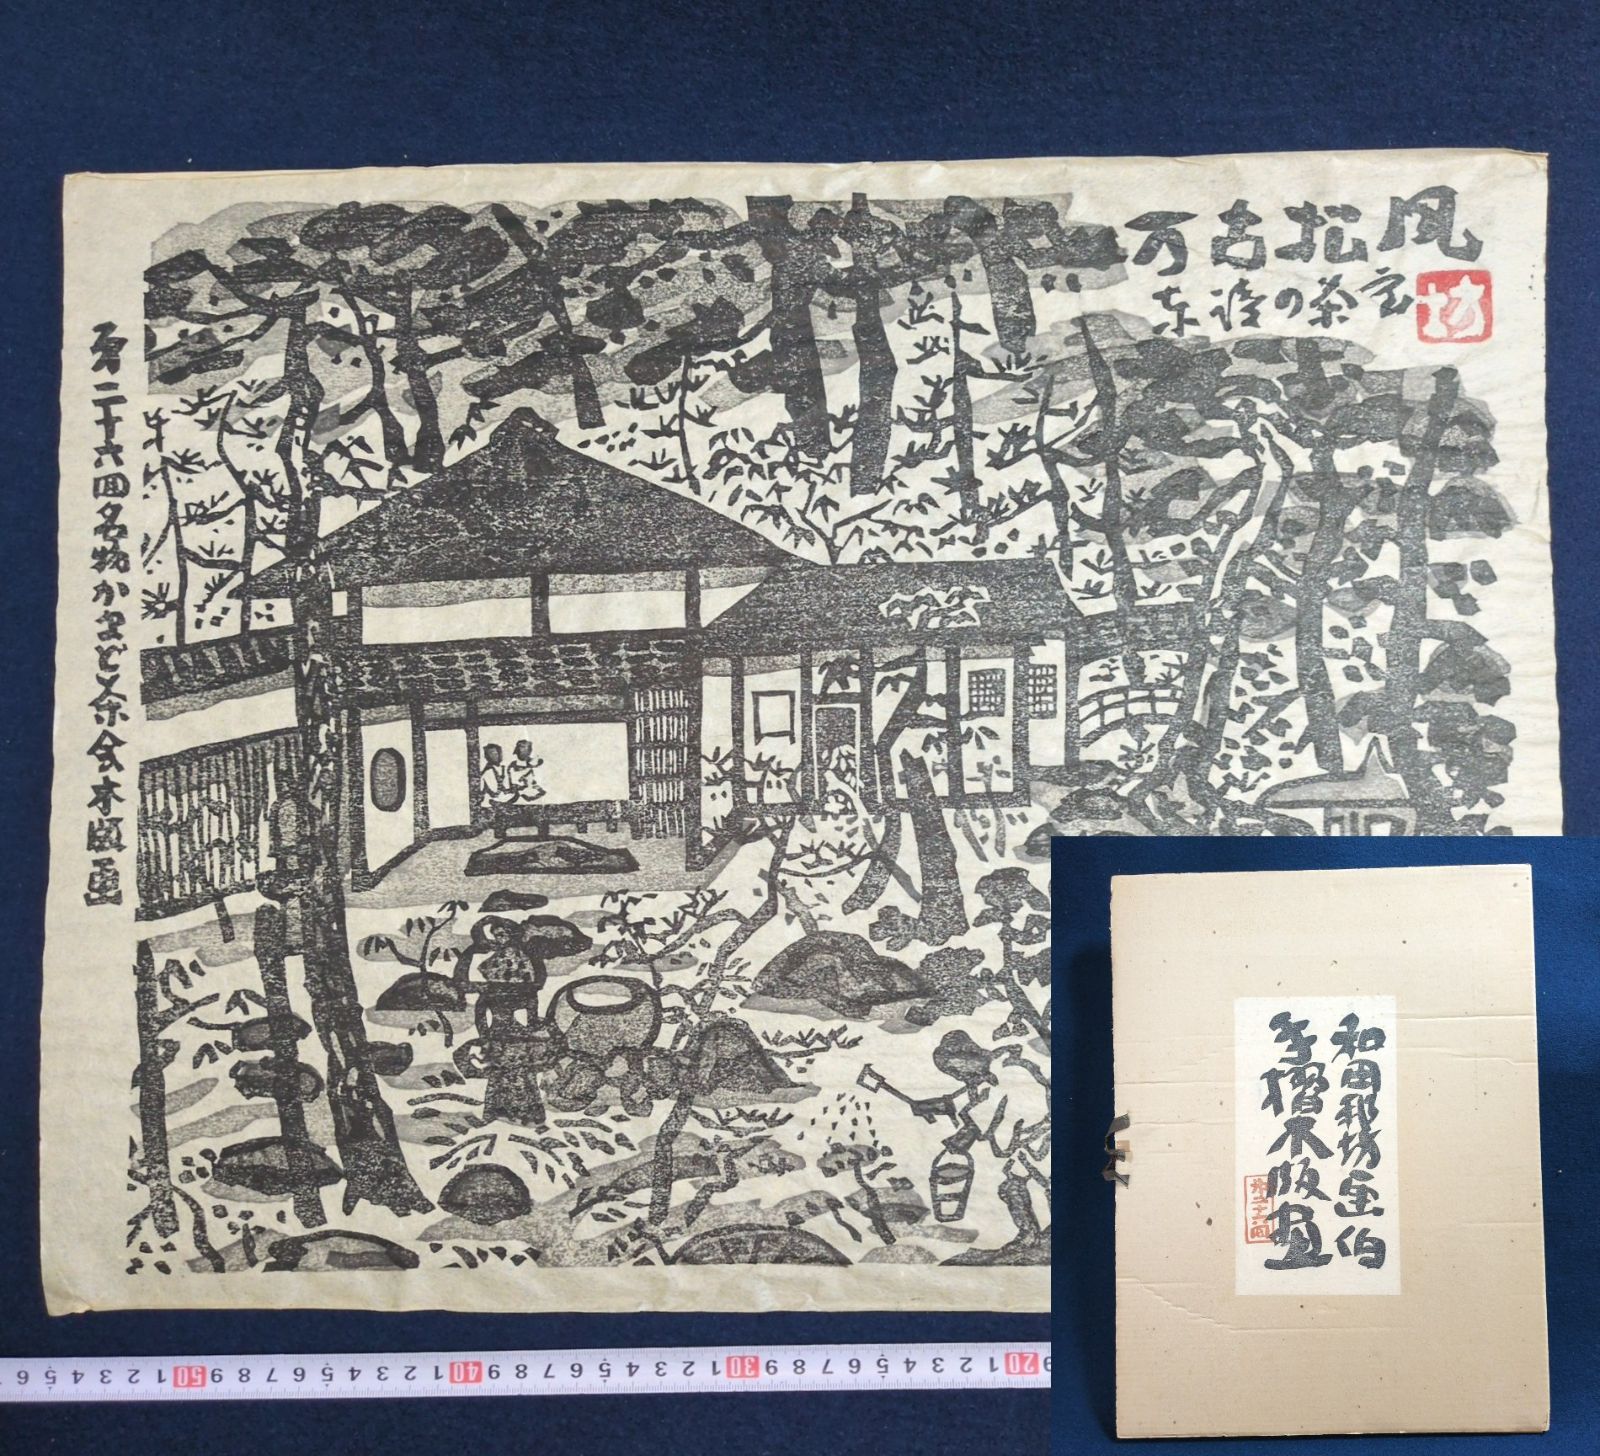 万古松風
坊
第二十六回名物かまど茶会木版画
和田邦坊画伯
手摺木版画
9 20 1 2 3 4 5 6 7 8 9 30 1 2 3 4 5 6 7 8 9 40 1 2 3 4 5 6 7 8 9 50 1 2 3 4 5 6